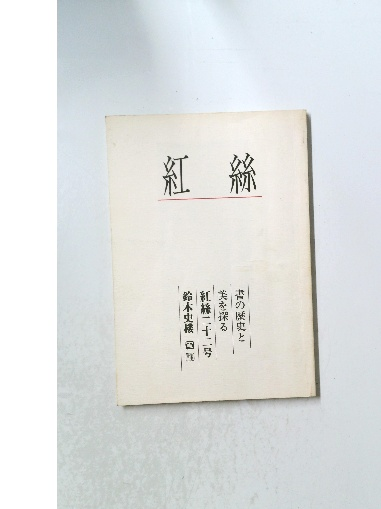 紅絲
書の歴史と
美を探る
紅絲二十二号
鈴木史楼